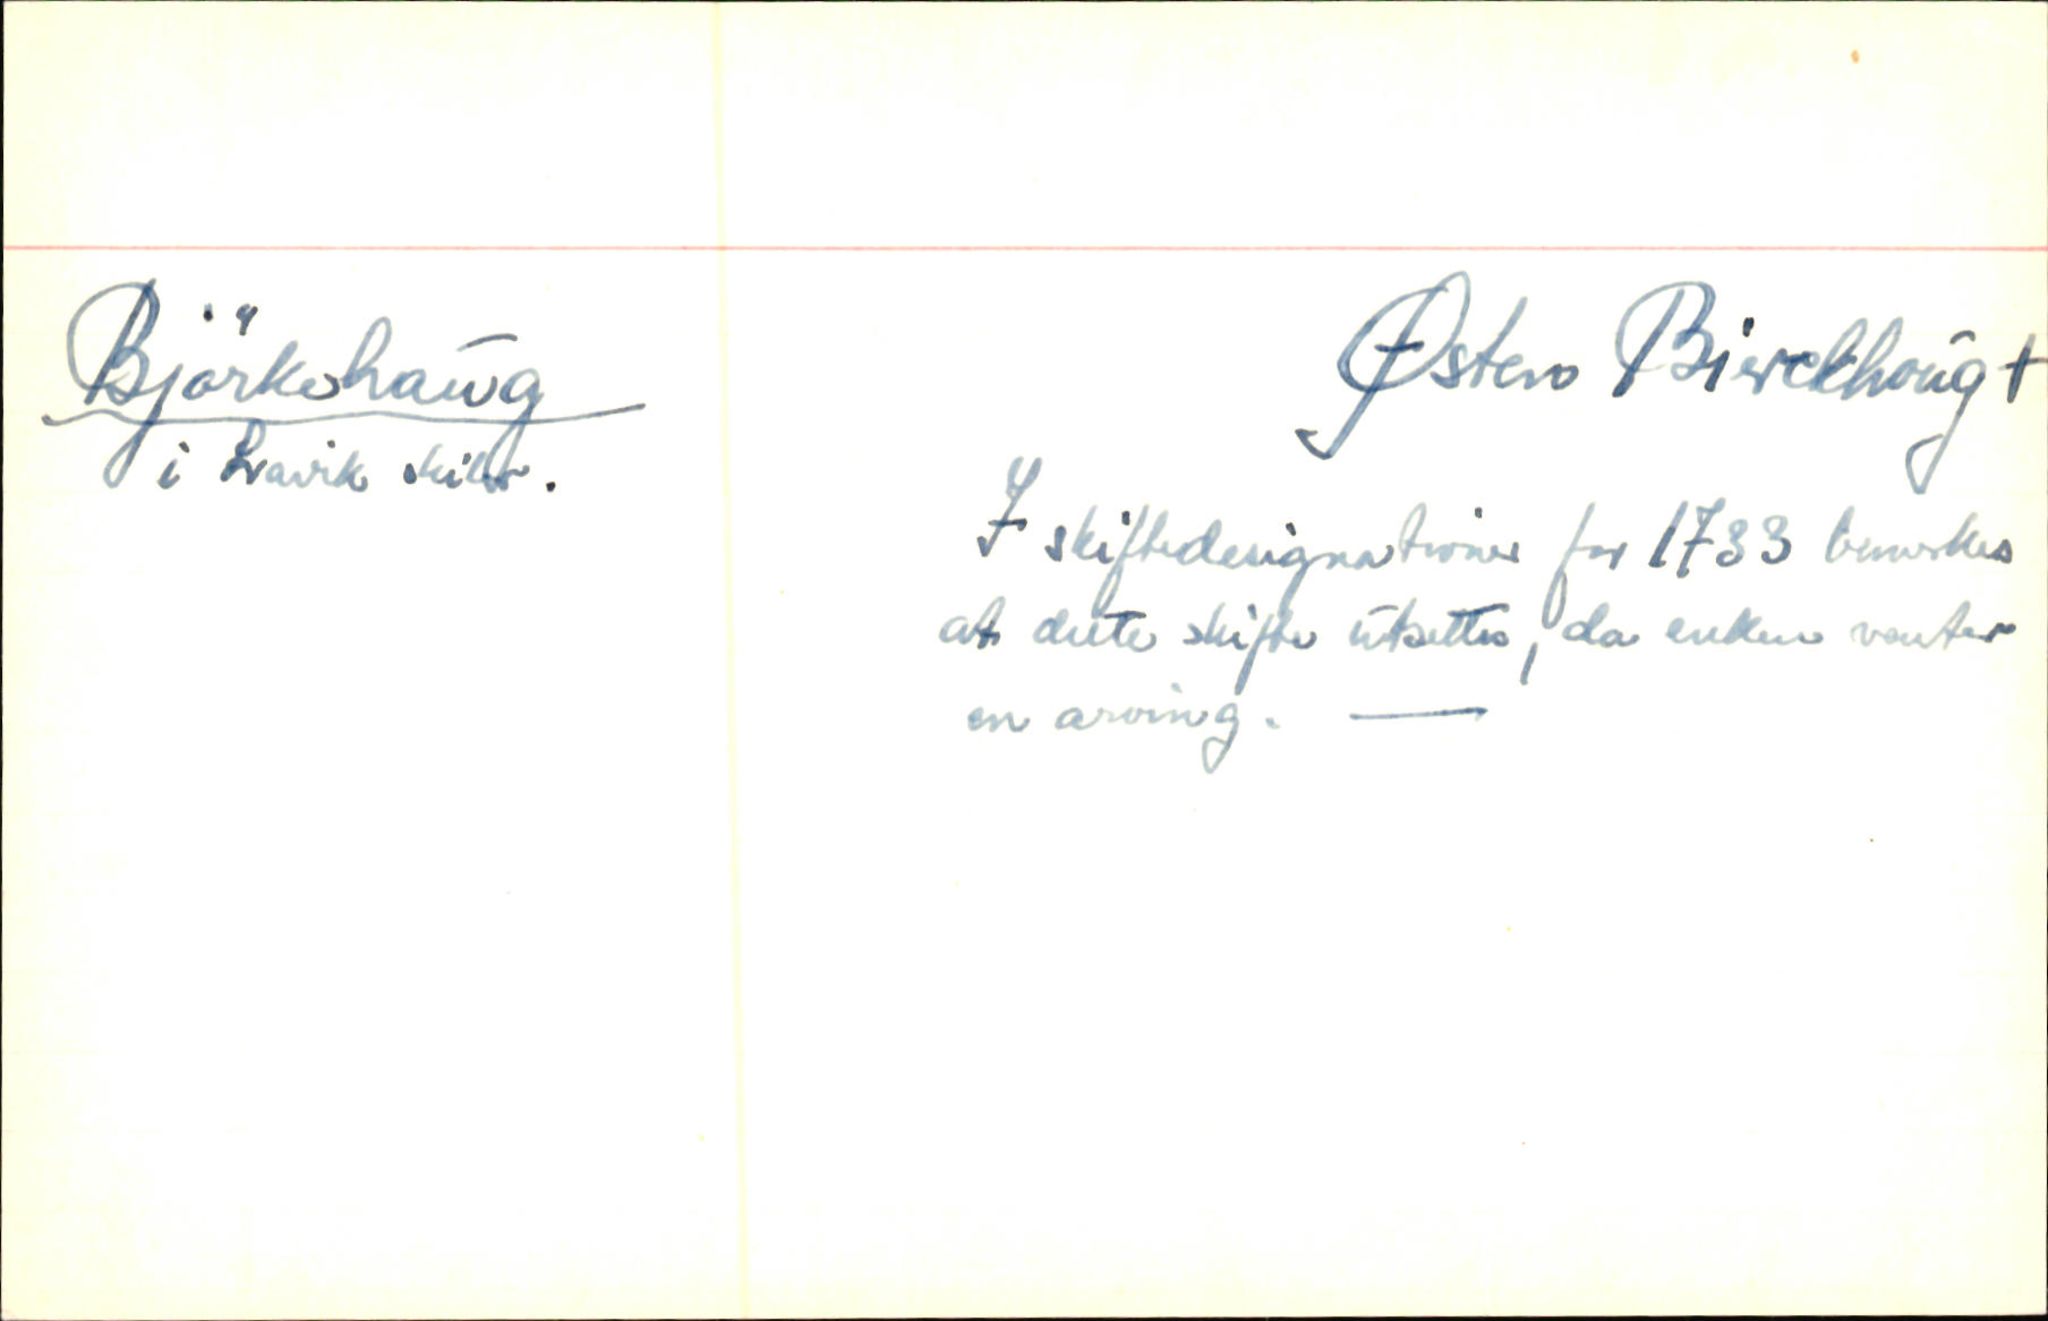 Björkehaug
i Lavik skibr.
Østen Bierckhoug +
I skiftedesignationer for 1733 bemerkes
at dette skifte utsettes, da enken venter
en arving. —